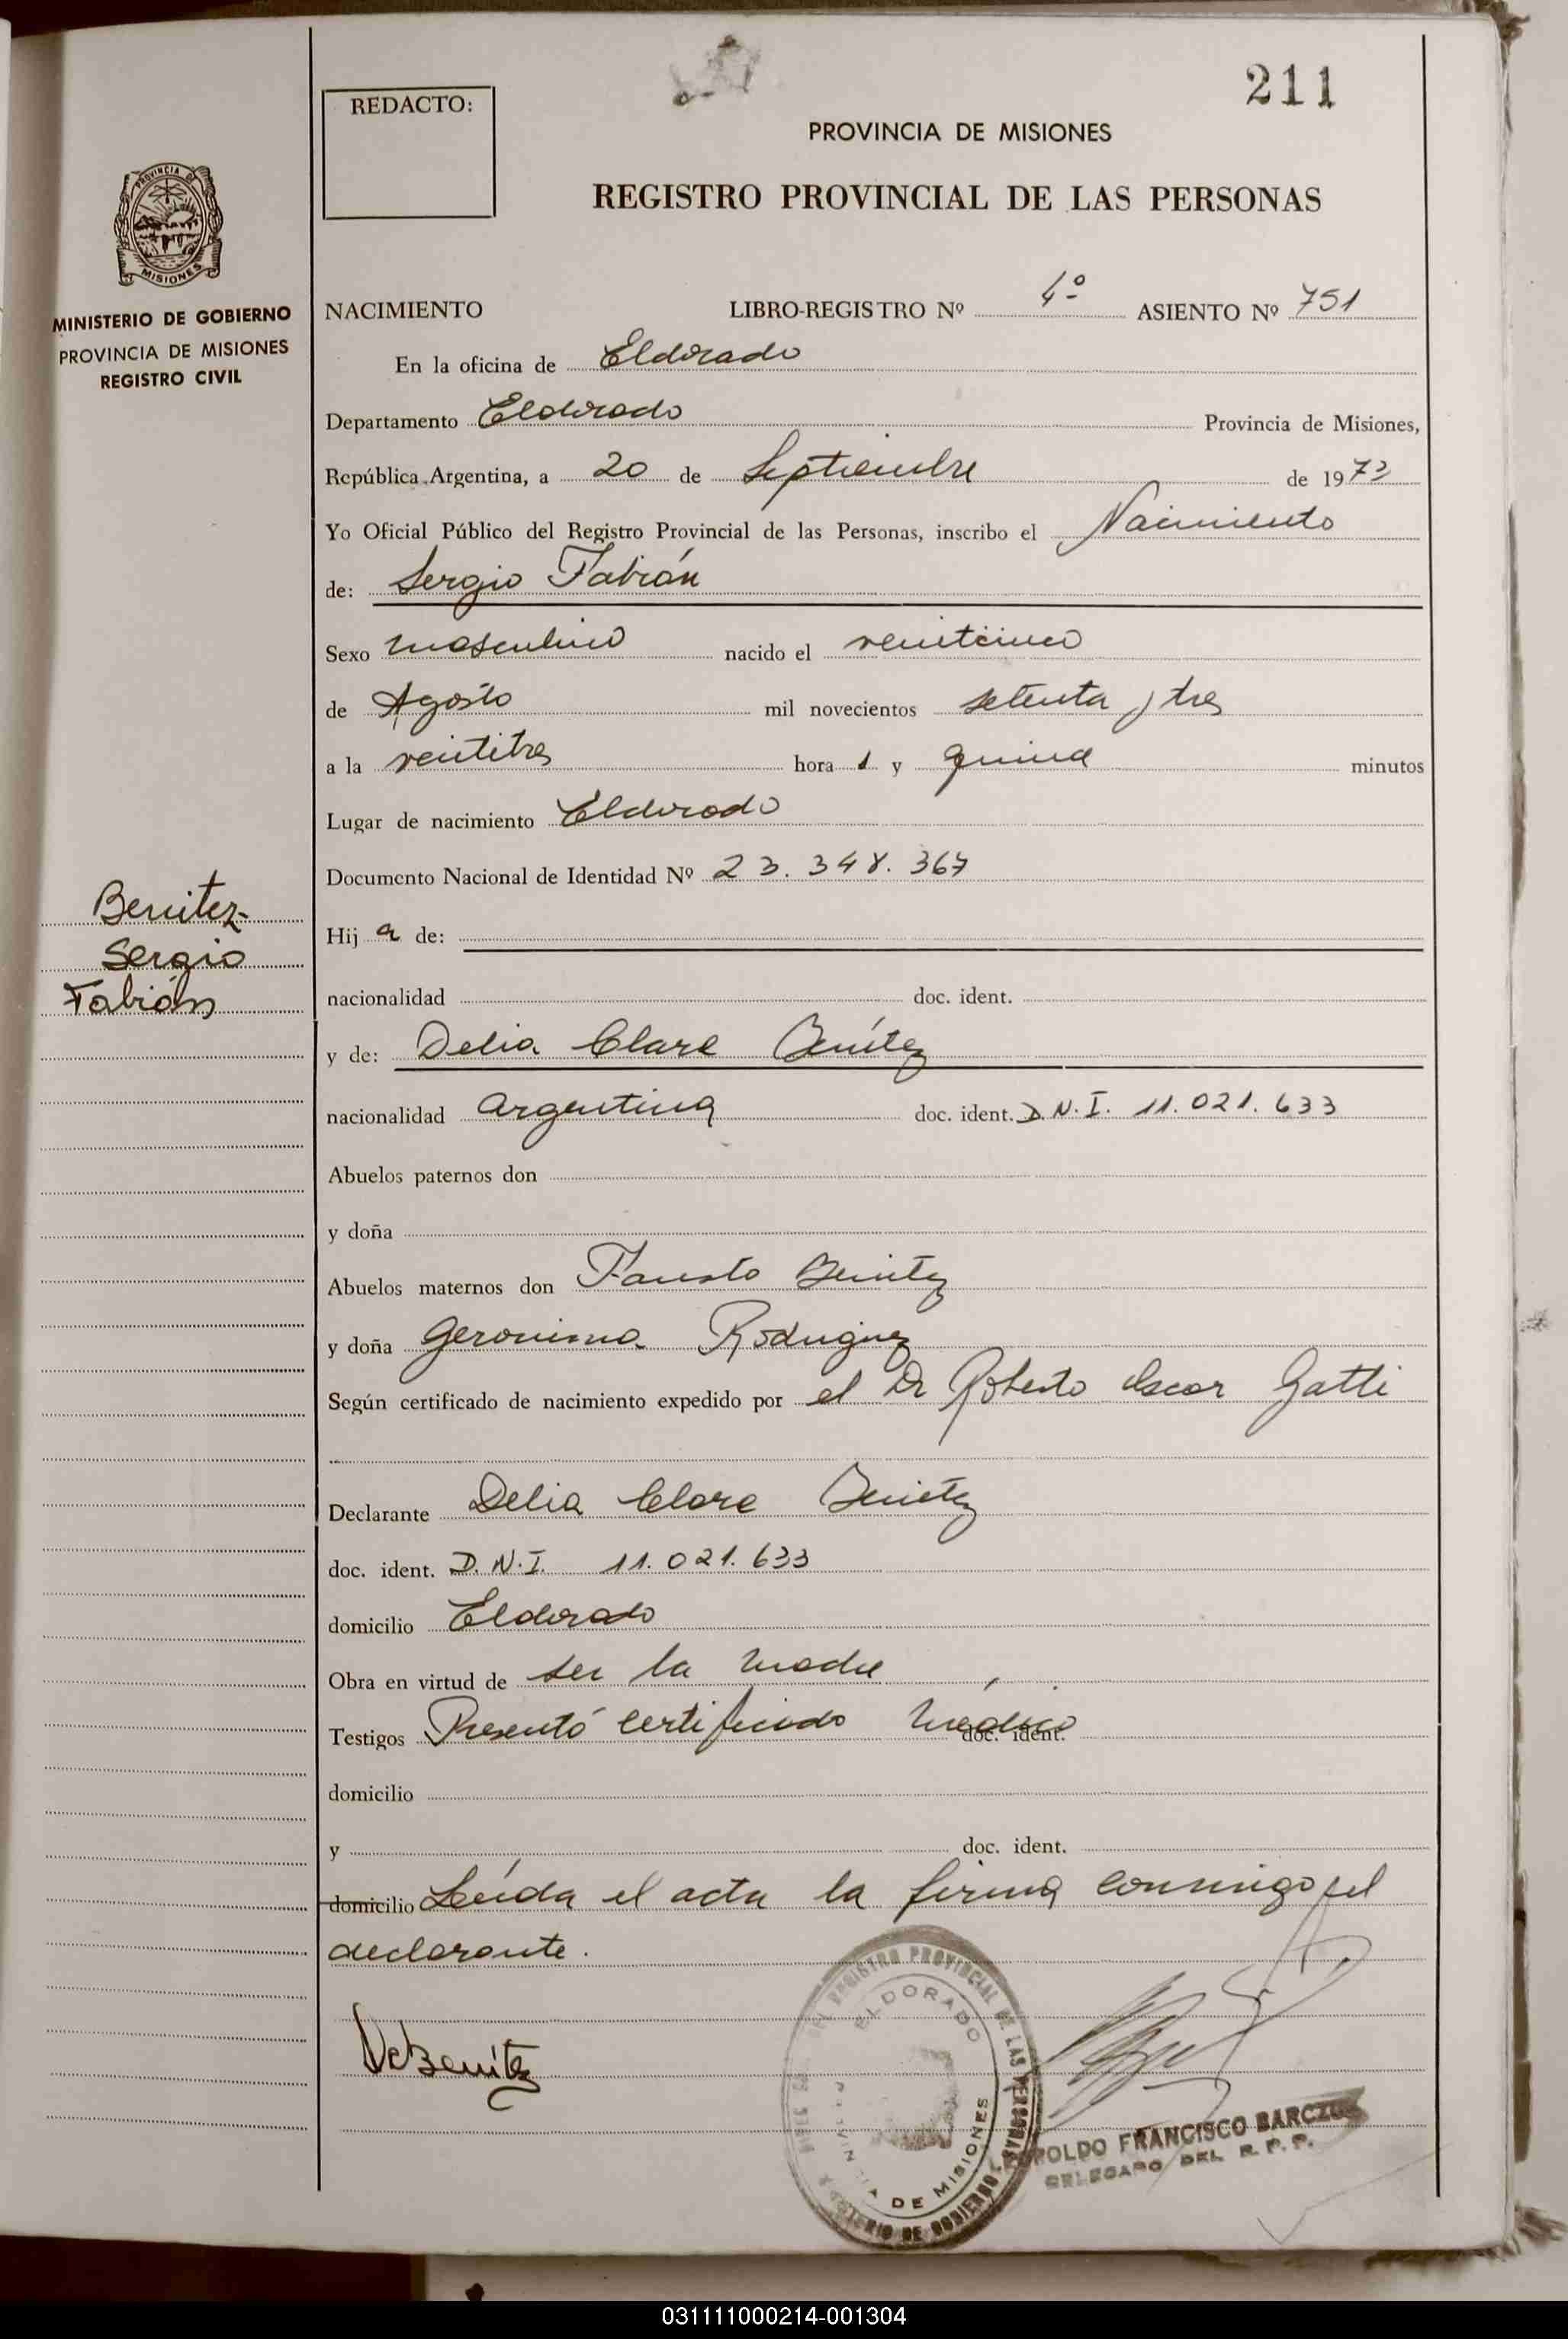 211
REDACTO:
PROVINCIA DE MISIONES
REGISTRO PROVINCIAL DE LAS PERSONAS
PROVINCIA DE
MISIONES
MINISTERIO DE GOBIERNO
PROVINCIA DE MISIONES
REGISTRO CIVIL
NACIMIENTO LIBRO-REGISTRO Nº 4º ASIENTO Nº 751
En la oficina de Eldorado
Departamento Eldorado Provincia de Misiones,
República Argentina, a 20 de Septiembre de 1973
Yo Oficial Público del Registro Provincial de las Personas, inscribo el Nacimiento
de: Sergio Fabián
Sexo masculino nacido el veinticinco
de Agosto mil novecientos setenta y tres
a la veintitres hora s y quince minutos
Lugar de nacimiento Eldorado
Documento Nacional de Identidad Nº 23.348.367
Benitez
Sergio
Fabián
Hij o de:
nacionalidad doc. ident.
y de: Delia Clara Benítez
nacionalidad argentina doc. ident. D.N.I. 11.021.633
Abuelos paternos don
y doña
Abuelos maternos don Fausto Benitez
y doña Geronima Rodriguez
Según certificado de nacimiento expedido por el Dr Roberto Oscar Gatti
Declarante Delia Clara Benitez
doc. ident. D.N.I. 11.021.633
domicilio Eldorado
Obra en virtud de ser la madre
Testigos Presentó certificado médico doc. ident.
domicilio
y doc. ident.
domicilio Leída el acta la firma conmigo el
declarante.
REGISTRO PROVINCIAL DE LAS PERSONAS
ELDORADO
PROVINCIA DE MISIONES
MINISTERIO DE GOBIERNO
DCBenítez
LEOPOLDO FRANCISCO
DELEGADO DEL R. P. P.
031111000214-001304